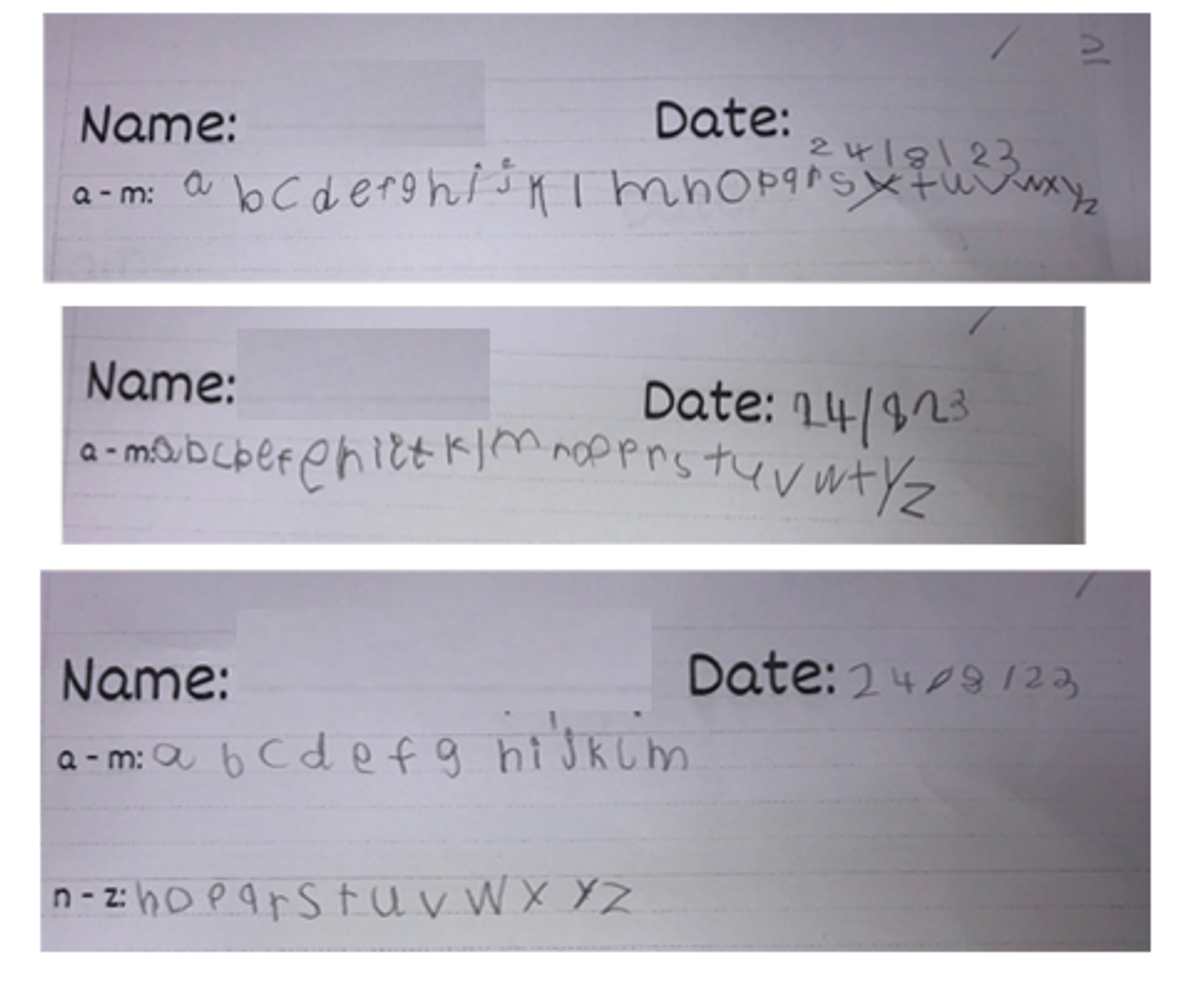 / 2
Name: Date:
24/8/23
a-m: a b c d e f g h i j k l m n o p q r s t u v w x y z
Name: Date: 24/823
a-m: a b c b e f e h i l t k l m n o p p r s t u v w t y z
Name: Date: 24/8/23
a-m: a b c d e f g h i j k l m
n-z: n o p q r s t u v w x y z